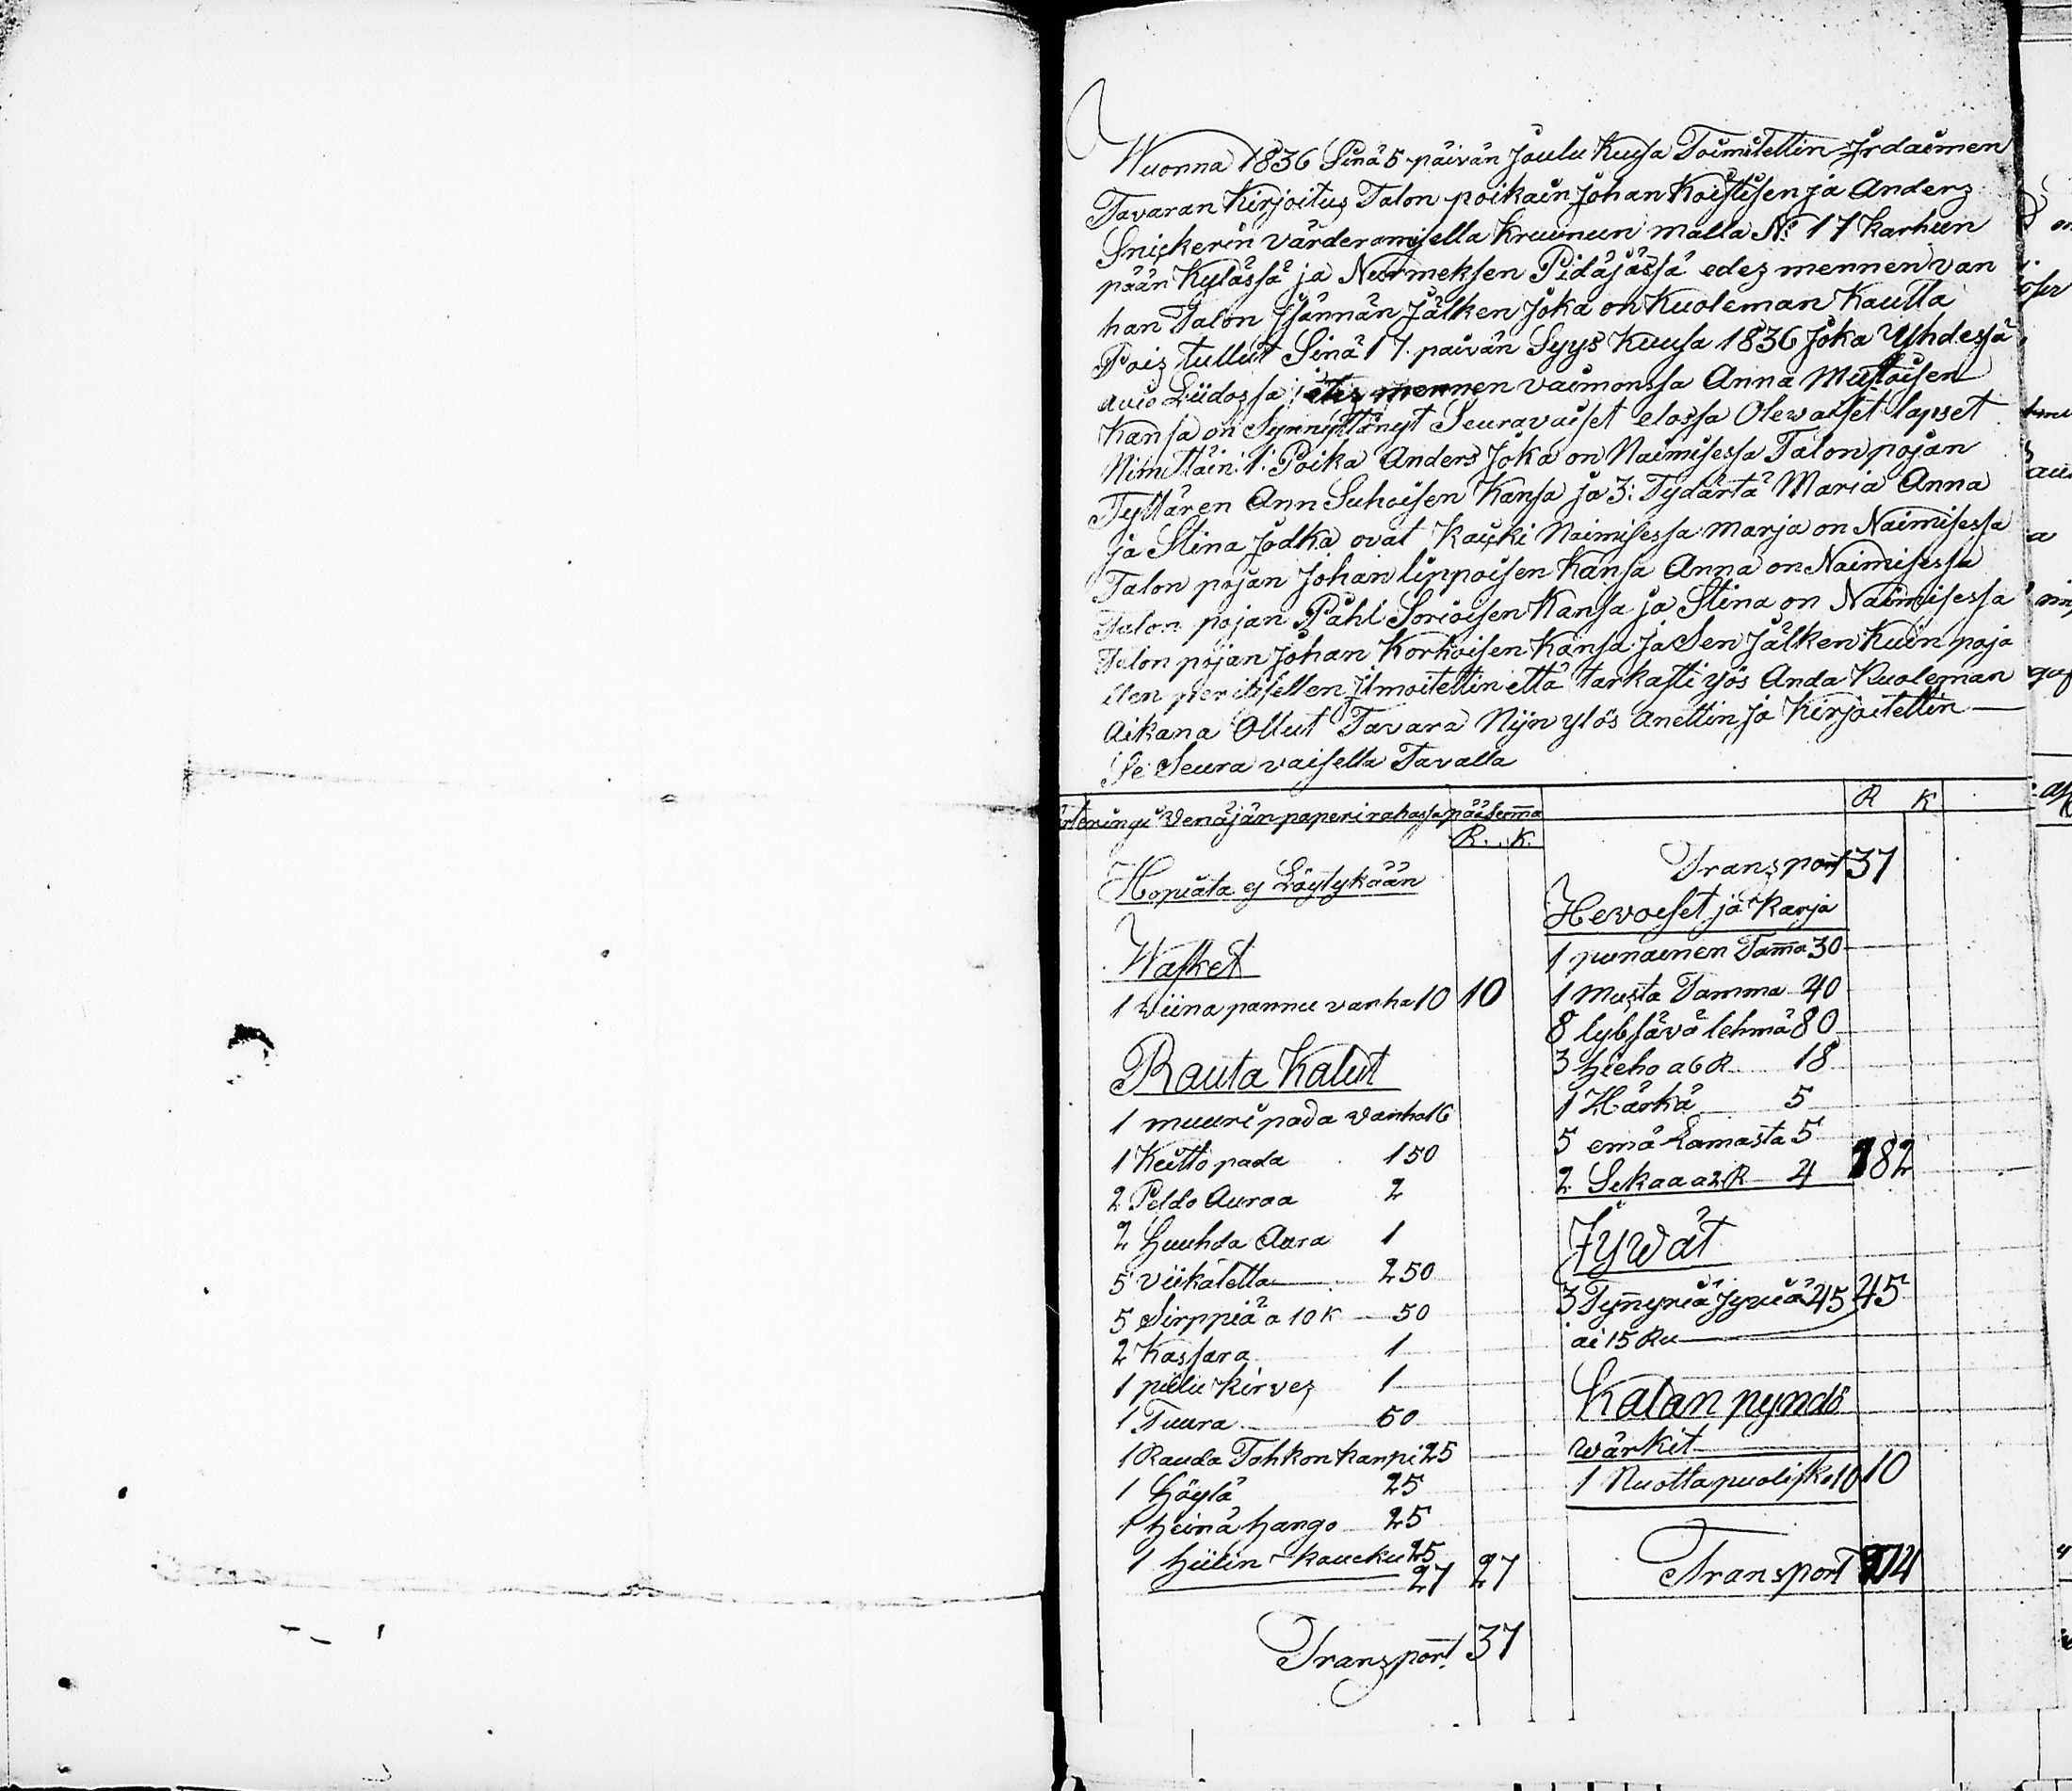 Wuonna 1836 Sinä 5 päivän Joulu Kuusa Toimitettin Irdaimen
Tavaran Kirjoitus Talon poikain Johan Koistisen ja Anders
Snickerin värderamisella Kruunun malla No 17 Karhun
pään Kylässä ja Nurmeksen Pidäjässä edes mennen van
han Talon Isännän Jälken Joka on Kuoleman Kautta
Pois tullut Sinä 17. päivän Syys Kuusa 1836 Joka Yhdessä
avio Liidossa edes mennen vaimonssa Anna Mustoisen
Kansa on Synnyttänyt Seuravaiset elossa Olewaiset lapset
Nimittäin: 1: Poika Anders Joka on Naimisessa Talon pojan
Tyttären Ann Suhoisen Kansa ja 3: Tydärtä Maria Anna
ja Stina Jodka ovat Kaicki Naimisessa Marja on Naimisessa
Talon pojan Johan lippoisen Kansa Anna on Naimisessa
Talon pojan Påhl Sorioisen Kansa ja Stina on Naimisessa
Talon pojan Johan Korhoisen Kansa Ja Sen Jälken Kuin poja
llen perillisellen Ilmoitettin että tarkasti yös Anda Kuoleman
Aikana Ollut Tavara Nijn ylös anettin ja Kirjoitettin
Se Seura vaisella Tavalla
Venäjän paperi rahassa pääsumma
R. K.
Hopiata ej Löytykään
Wasket
1 Viina pannu vanha 10 10
Rauta Kalut
1 muuri pada vanha 16
1 Keitto pada 1 50
2 Peldo Auraa 2
2 Huuhda Aura 1
5 viikatetta 2 50
5 Sirppiä a 10 K 50
2 Kassara 1
1 piilu Kirves 1
1 Tuura 50
1 Rauda Tahkon kampi 25
1 Höylä 25
1 heinä hango 25
1 hiilin koucku 25
27 27
Transport 37
R K
Transport 37
Hevoiset ja Karja
1 punainen Tamma 30
1 Musta Tamma 40
8 lybsävä lehmä 80
3 hieho a 6 R 18
1 Härkä 5
5 emä Lamasta 5
2 Sikaa a 2 R 4 182
Jywät
3 Tynnyriä Jyviä 45 45
ai 15 Ru
Kalan pyndö
wärkit
1 Nuotta puolisko 10 10
Transport 274